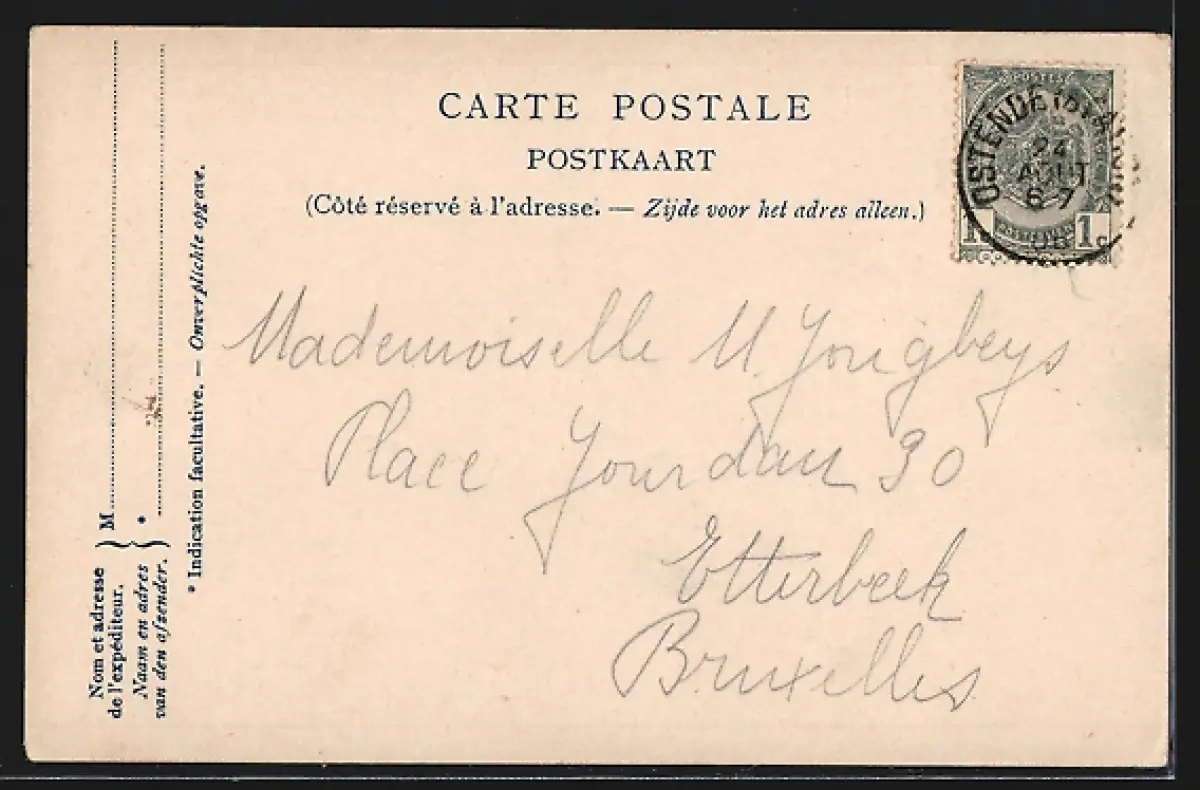 CARTE POSTALE
POSTKAART
(Côté réservé à l'adresse. — Zijde voor het adres alleen.)
OSTENDE
24
AOUT
6-7
1c 1c
Mademoiselle M. Jongbeys
Place Jourdan 30
Etterbeek
Bruxelles
Nom et adresse
de l'expéditeur.
Naam en adres
van den afzender.
M
*
* Indication facultative. — Onverplichte opgave.